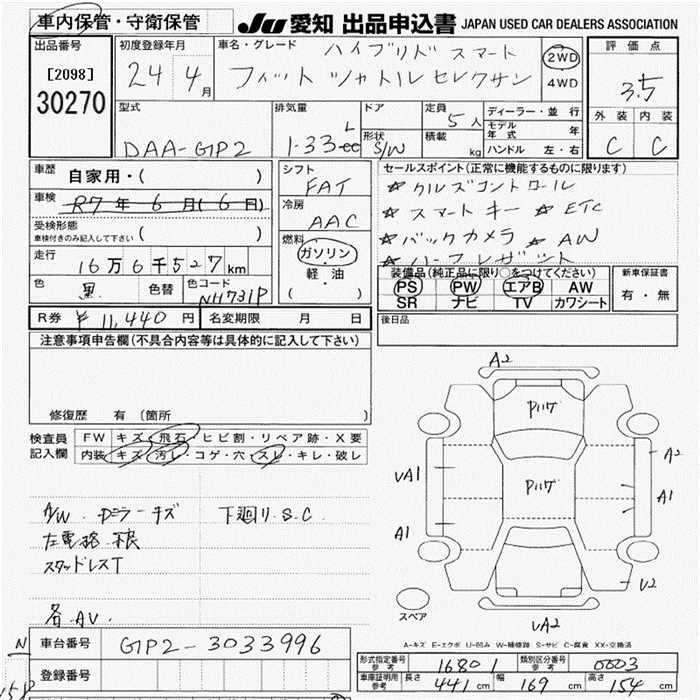 車内保管・守衛保管
JU 愛知 出品申込書 JAPAN USED CAR DEALERS ASSOCIATION
出品番号
[2098]
30270
初度登録年月
24 4月
車名・グレード
ハイブリド スマート
フィット シャトル セレクサン
2WD
4WD
評価点
3.5
外装 内装
C C
型式
DAA-GP2
排気量
1.33 L cc
ドア
形状
S/W
定員
5人
積載 kg
ディーラー・並行
モデル年式 年
ハンドル 左・右
車歴
自家用・( )
車検
R7年6月(6日)
受検形態
車検付きのみ記入して下さい ( )
走行
16万6千527km
色
黒
色替
色コード
NH731P
シフト
FAT
冷房
AAC
燃料
ガソリン
・
軽・油
( )
セールスポイント(正常に機能するものに限ります)
☆クルズコントロール
☆スマートキー ☆ETC
☆バックカメラ ☆AW
☆ハーフレザシート
装備品(純正品に限り○をつけてください)
PS PW エアB AW
SR ナビ TV カワシート
新車保証書
有・無
R券 ¥11,440円
名変期限 月 日
後日品
注意事項申告欄(不具合内容等は具体的に記入して下さい)
修復歴 有〔箇所
検査員
記入欄
FW キズ・飛石・ヒビ割・リペア跡・X要
内装 キズ・汚レ・コゲ・穴・スレ・キレ・破レ
A/W Dミラーキズ 下廻りS.C
スタッドレスT
各AV
A2
P117
P117
A2
UA1
A1
A1
U2
UA2
スペア
A-キズ E-エクボ U-凹み W-補修跡 S-サビ C-腐食 XX-交換済
車台番号
GP2-3033996
登録番号
N
型式指定番号
参考
16801
類別区分番号
参考
0003
車庫証明用
参考
長さ 441cm 幅 169cm 高さ 154cm